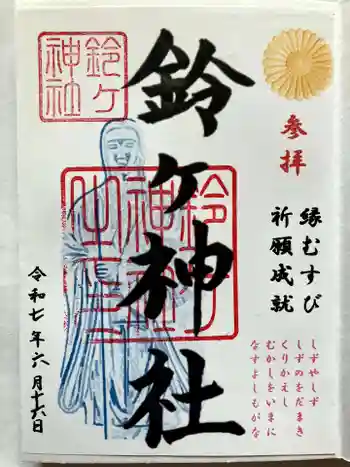 参拝
縁むすび
祈願成就
しずやしず
しずのをだまき
くりかえし
むかしをいまに
なすよしもがな
鈴ケ神社
鈴ケ
神社
鈴ケ
神社
之印
令和七年六月十六日